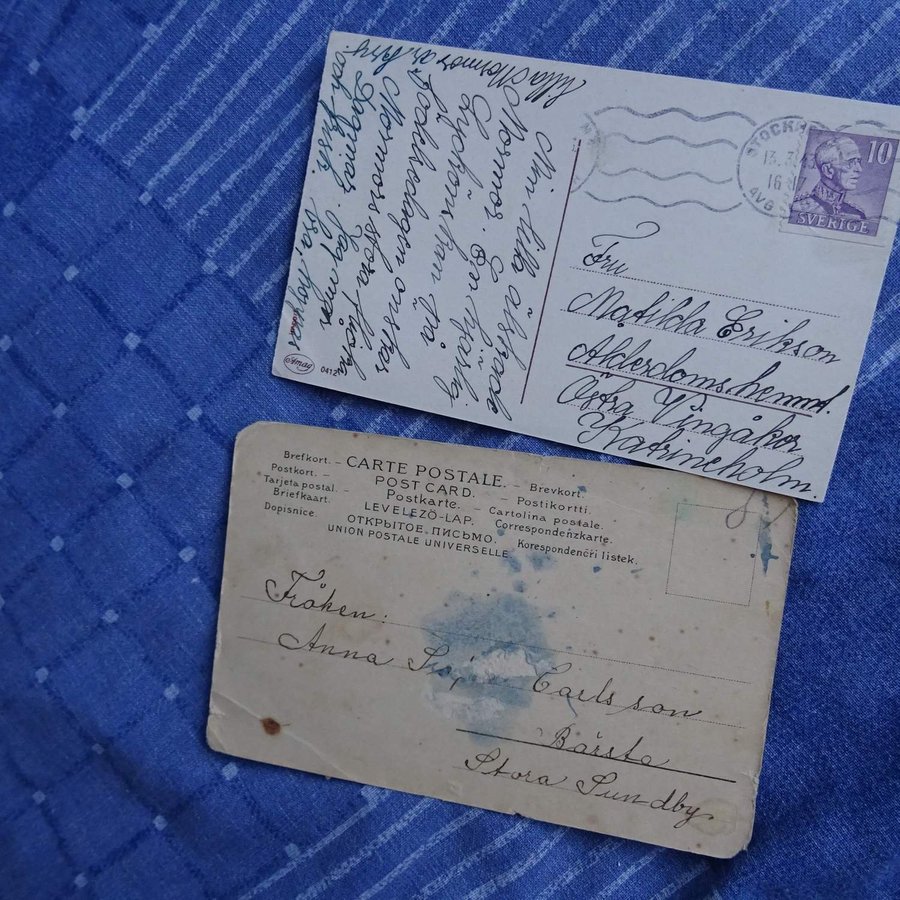 Min lilla älskade
Mormor. En hjärtlig
Lyckönskan på
Födelsedagen önskas
Mormors stora flicka
Dagmar. Jag mår
bra, hoppas
lilla Mormor är kry
och frisk.
Amag
0412
STOCKH
13.3
16
AVG
10
SVERIGE
Fru
Matilda Erikson
Ålderdomshemmet.
Östra Vingåker
Katrineholm.
Brefkort. – CARTE POSTALE. – Brevkort.
Postkort. – POST CARD. – Postikortti.
Tarjeta postal. – Postkarte. – Cartolina postale.
Briefkaart. LEVELEZÖ-LAP. Correspondenzkarte.
Dopisnice. ОТКРЫТОЕ ПИСЬМО. Korespondenčri listek.
UNION POSTALE UNIVERSELLE
Fröken:
Anna Carlsson
Bärsta
Stora Sundby